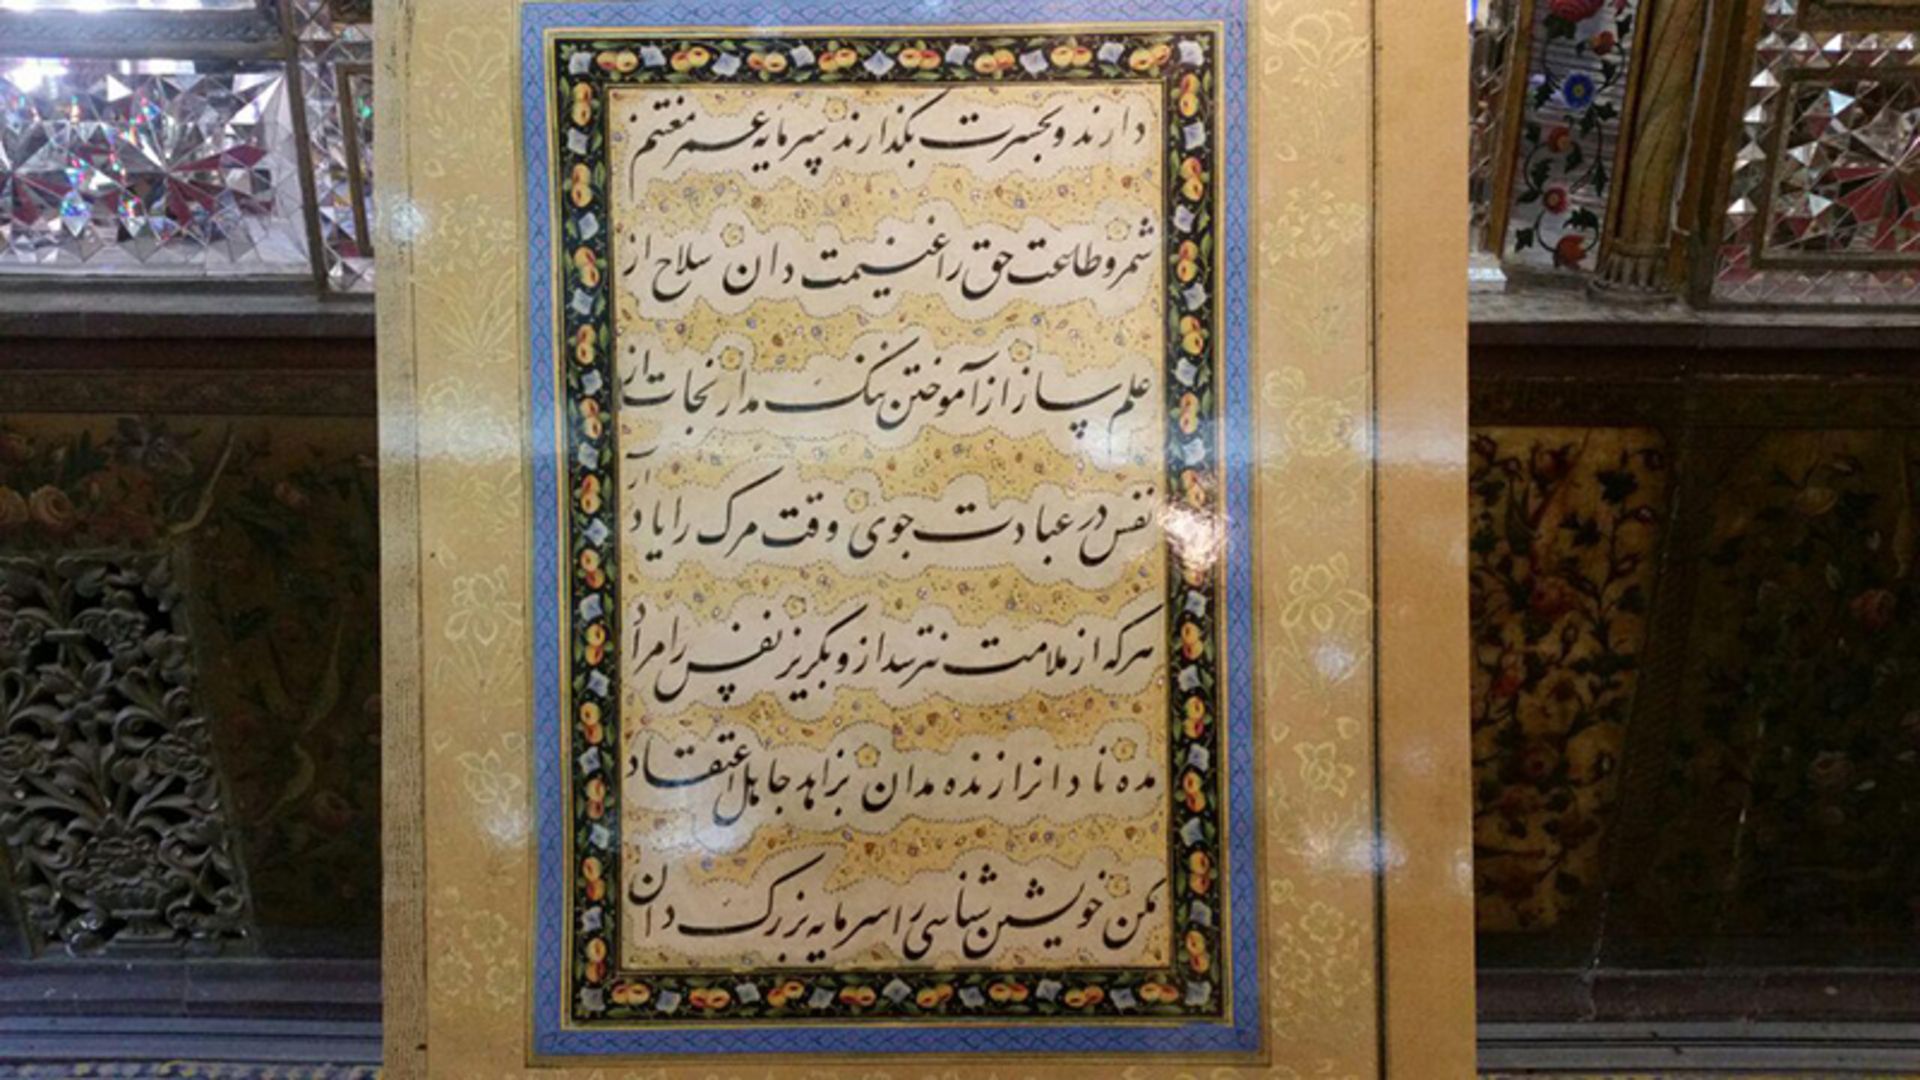 دارند و بحسرت بگذارند سرمایه عمر مغتنم
شمر و طاعت حق را غنیمت دان سلاح از
علم ساز از آموختن ننگ مدار نجات از
نفس در عبادت جوی وقت مرگ را یاد آر
هرکه از ملامت نترسد از و بگریز نفس را مراد
مده نادان را زنده مدان بزاهد جاهل اعتقاد
مکن خویشتن شناسی را سرمایه بزرگ دان